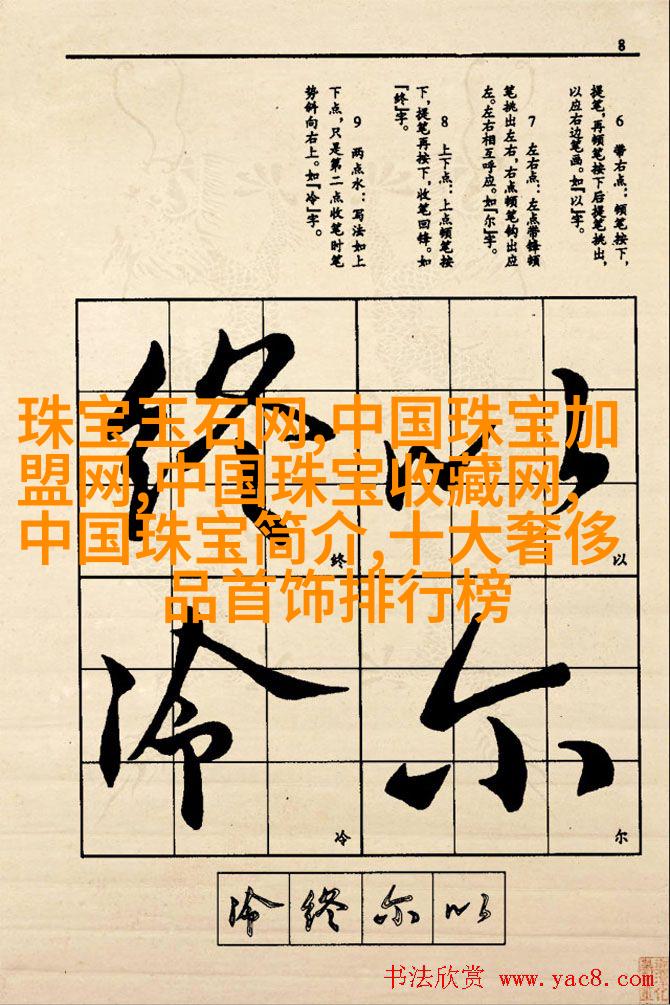 8
6 带右点：顿笔按下，
提笔，再顿笔按下后提笔挑出，
以应右边笔画。如『以』字。
7 左右点：左点带锋顿
笔挑出左右，右点顿笔钩出应
左。左右相互呼应。如『尔』字。
8 上下点：上点顿笔按
下，提笔再按下，收笔回锋。如
『终』字。
9 两点水：写法如上
下点，只是第二点收笔时笔
势斜向右上。如『冷』字。
珠宝玉石网,中国珠宝加
盟网,中国珠宝收藏网,
中国珠宝简介,十大奢侈
品首饰排行榜
終 以
终 以
冷 尔
冷 尔
冷 終 尔 以
书法欣赏 www.yac8.com